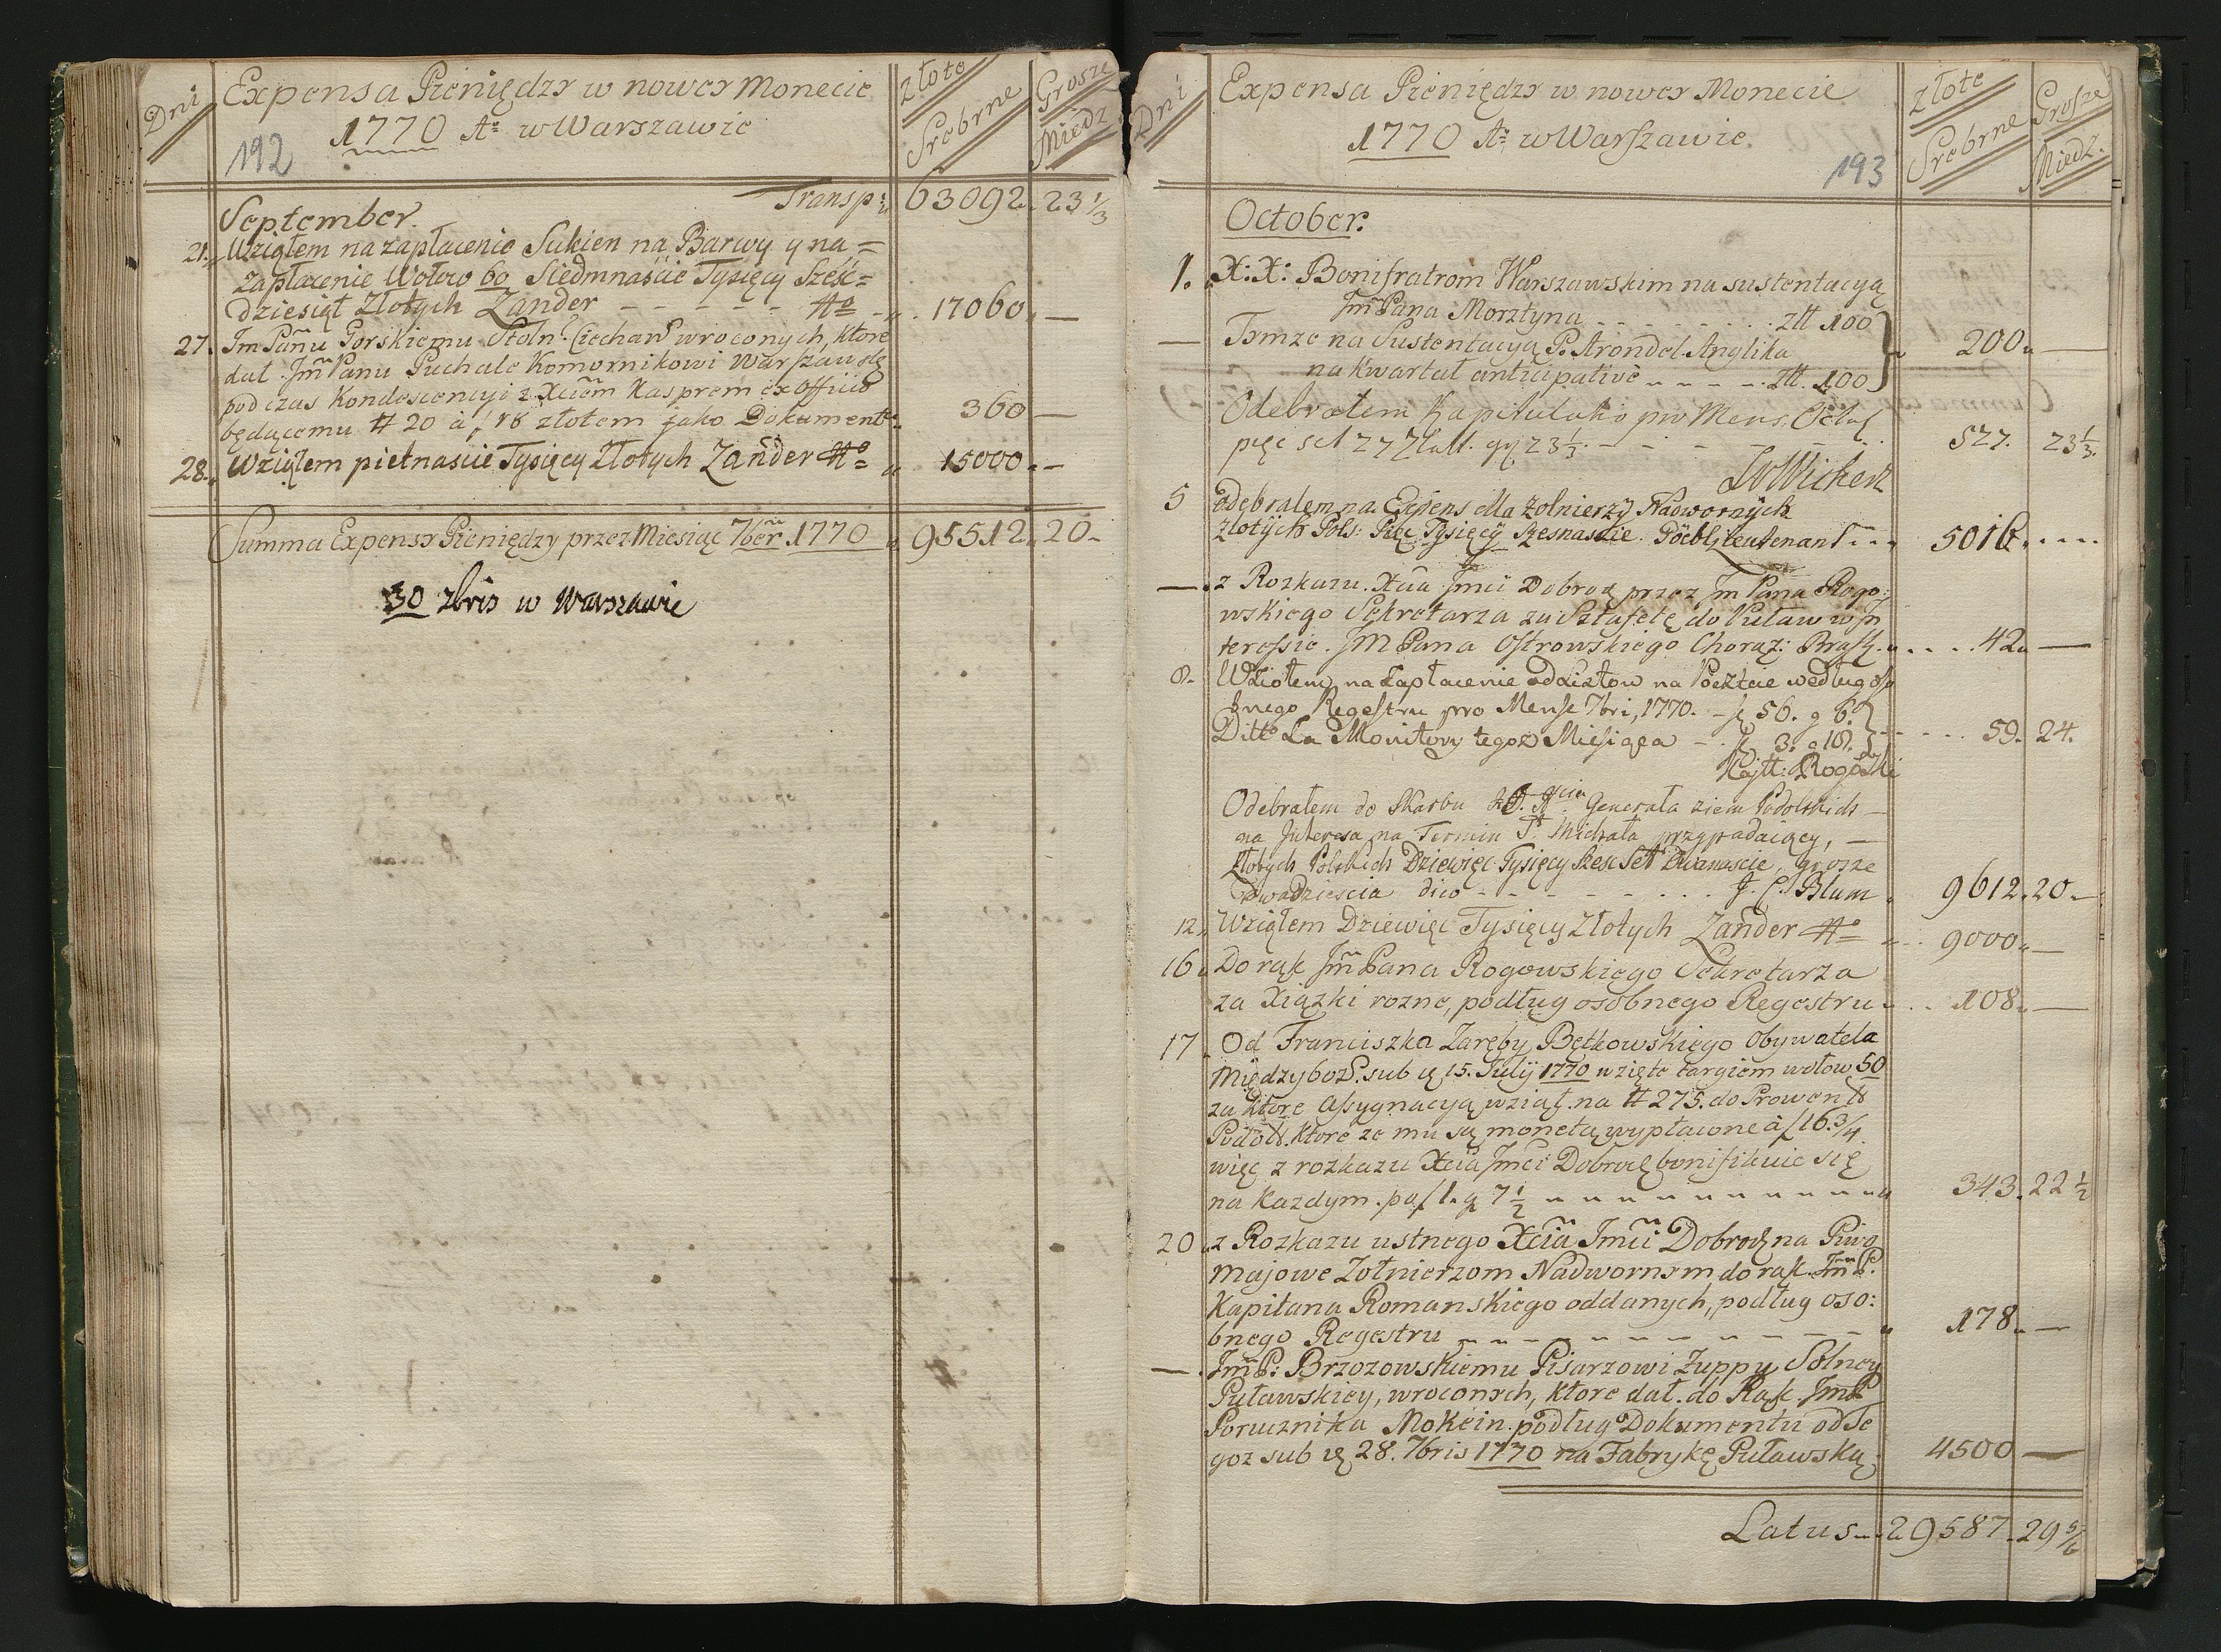 Dni
Expensa Pieniędzy w nowey Monecie
złote
Srebrne
Grosze
Miedz
192
1770 Aº w Warszawie
Transp:
63092. 23 1/3
September.
21. Wziąłem na zapłacenie Sukien na Barwy y na=
zapłacenie Wołow 60 Siedmnaście Tysięcy Sześć=
dziesiąt Złotych Zander
17060. —
27. Jm Panu Gorskiemu Stoln: Ciechan: wroconych, ktore
dał Jm Panu Puchale Komornikowi Warszawsk
pod czas Kondescencyi z Xciem Kasprem ex Officio
będącemu # 20 à f 18 złotem jako Dokument
360 —
28. Wziąłem pietnascie Tysięcy Złotych Zander
15000. —
Summa Expensy Pieniędzy przez Miesiąc 7ber 1770
95512. 20 -
30 7bris w Warszawie
Dni
Expensa Pieniędzy w nowey Monecie
złote
Srebrne
Grosze
Miedz.
1770 Aº w Warszawie.
193
October.
1. X: X: Bonifratrom Warszawskim na sustentacyą
Jm Pana Morsztyna złł 100
— Tymze na Sustentacyą P. Arondel Anglika
na kwartał anticipative złł. 100
200. —
Odebrałem Kapitulako pro Mens. Octob
pięc set 27 Złott. gr 23 1/3
527. 23 1/3.
Wickert
5 odebralem na Expens dla zolnierzy Nadwornych
złotych Pols: Pięc Tysięcy szesnascie. Pöebl Leutenant
5016. ....
— z Rozkazu Xcia Jmci Dobrodz przez Jm Pana Rogo:
wskiego Sekretarza za Sztafetę do Puław w In
teressie JM Pana Ostrowskiego Choraż:
42. —
8. Wziołem na Zapłacenie od Listow na Poczcie według oso
bnego Regestru pro Mense 7bri, 1770. - f 56. g 6.
Ditto Za Monitory tegoz Miesiąca - f 3. g 18.
59. 24.
Kajtt: Rogowski
Odebrałem do Skarbu Xcia Generała ziem Podolskich —
na Interesa na Termin S. Michała przypadaiący, —
Złotych Polskich Dziewięc Tysięcy Szesc Set Dwanascie, grosze
dwadziescia dico J. C. Blum
9612. 20 -
12. Wziąłem Dziewięc Tysięcy Złotych Zander
9000. —
16. Do rąk Jm Pana Rogowskiego Sekretarza
za Xiązki rozne, podług osobnego Regestru
108. —
17. Od Franciszka Zaręby Bętkowskiego Obywatela
Międzyboz. sub 15. Julij 1770 wzięte targiem wołow 50
za ktore Assygnacyą wziął na # 275. do Prowent
Podol. ktore ze mu są monetą wypłacone à f 16. 3/4
więc z rozkazu Xcia Jmci Dobrodz bonifikuie się
na kazdym po f 1. g 7 1/2
343. 22 1/2
20. z Rozkazu ustnego Xcia Jmci Dobrodz na Piwo
majowe Zołnierzom Nadwornym do rąk Jm P.
Kapitana Romanskiego oddanych, podług oso:
bnego Regestru
178. —
— Jm P: Brzozowskiemu Pisarzowi Zuppy Solney
Puławskiey, wroconych, ktore dał do Rąk Jm P
Porucznika Mokein podług Dokumentu od Te
goz sub 28. 7bris 1770 na Fabrykę Puławską
4500 —
Latus 29587. 29 5/6